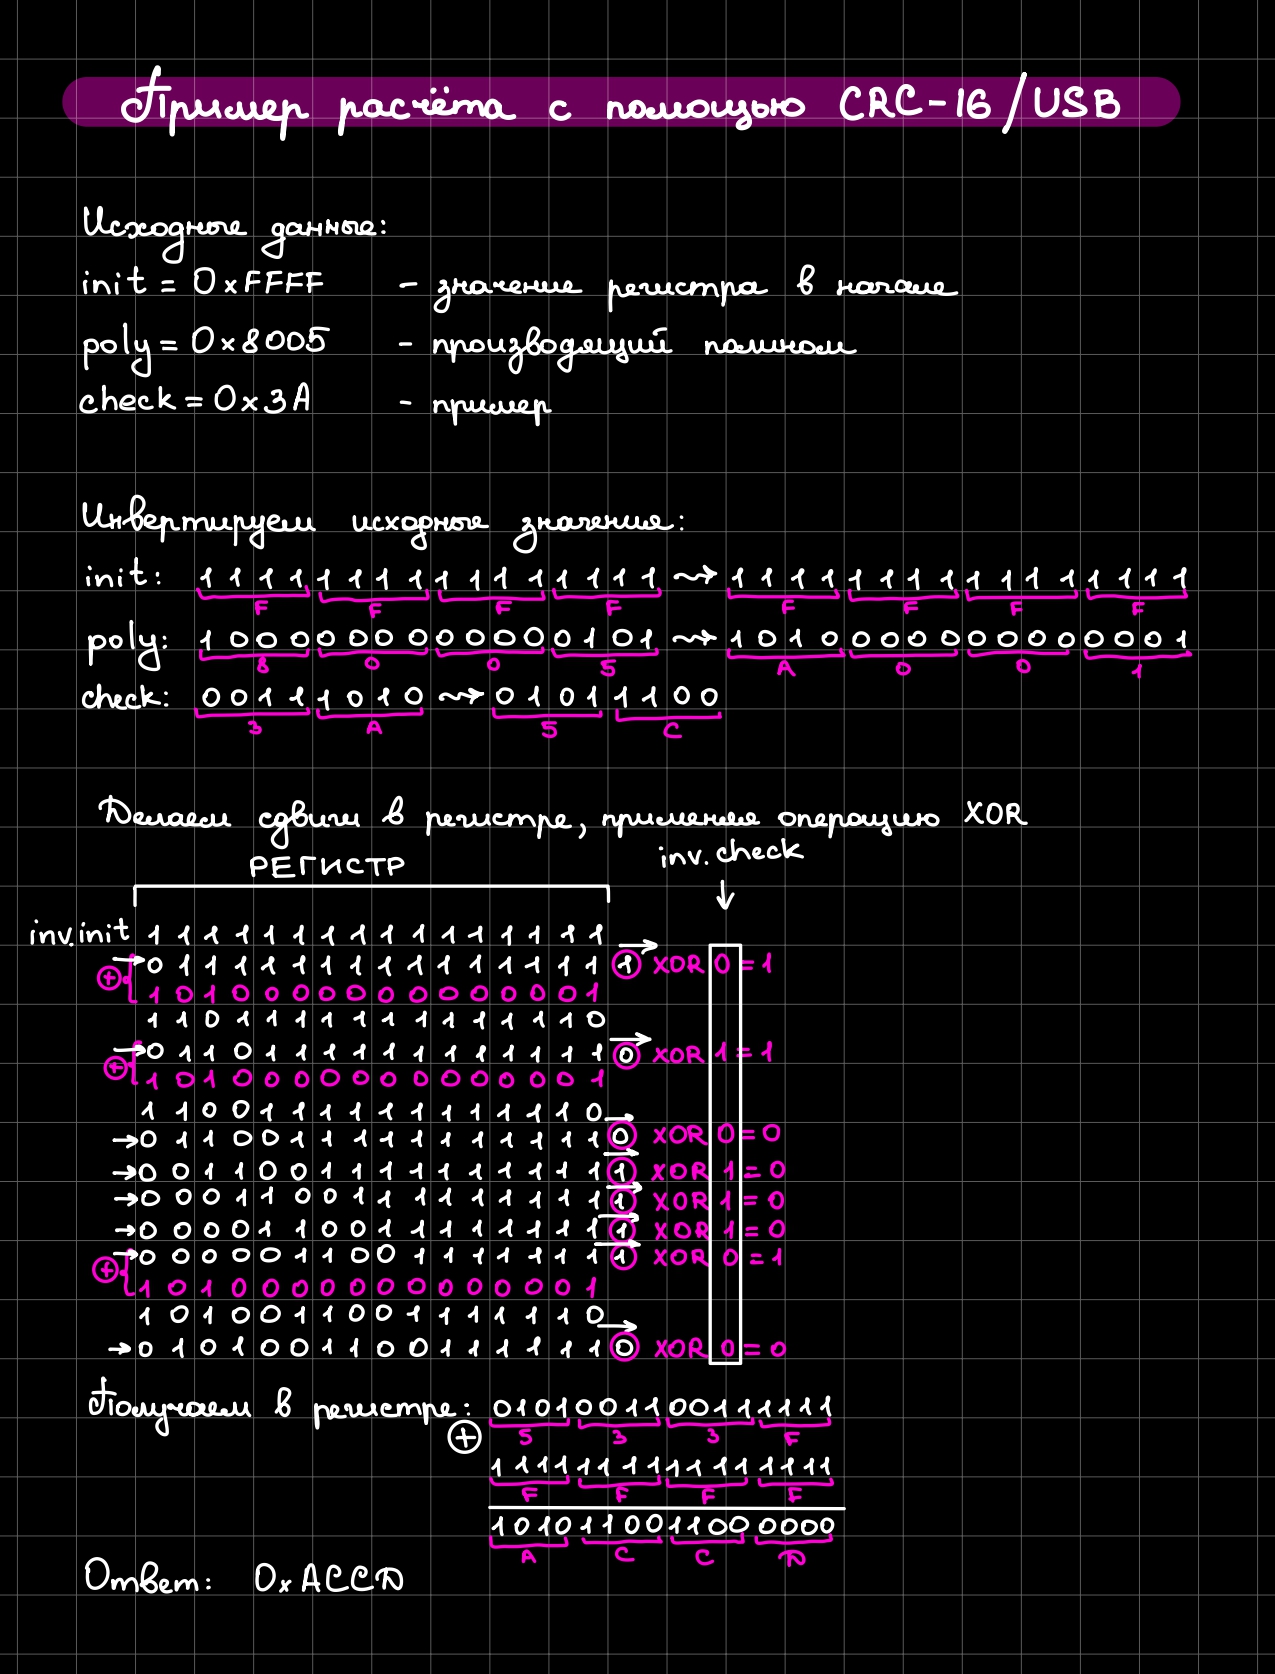 Пример расчёта с помощью CRC-16/USB
Исходные данные:
init = 0xFFFF - значение регистра в начале
poly = 0x8005 - производящий полином
check = 0x3A - пример
Инвертируем исходные значения:
init: 1111 1111 1111 1111 ⇝ 1111 1111 1111 1111
F F F F F F F F
poly: 1000 0000 0000 0101 ⇝ 1010 0000 0000 0001
8 0 0 5 A 0 0 1
check: 0011 1010 ⇝ 0101 1100
3 A 5 C
Делаем сдвиги в регистре, применяя операцию XOR
РЕГИСТР inv. check
inv. init 1 1 1 1 1 1 1 1 1 1 1 1 1 1 1 1
0 1 1 1 1 1 1 1 1 1 1 1 1 1 1 1 1 XOR 0 = 1
⊕ 1 0 1 0 0 0 0 0 0 0 0 0 0 0 0 1
1 1 0 1 1 1 1 1 1 1 1 1 1 1 1 0
0 1 1 0 1 1 1 1 1 1 1 1 1 1 1 1 0 XOR 1 = 1
⊕ 1 0 1 0 0 0 0 0 0 0 0 0 0 0 0 1
1 1 0 0 1 1 1 1 1 1 1 1 1 1 1 0
0 1 1 0 0 1 1 1 1 1 1 1 1 1 1 1 0 XOR 0 = 0
0 0 1 1 0 0 1 1 1 1 1 1 1 1 1 1 1 XOR 1 = 0
0 0 0 1 1 0 0 1 1 1 1 1 1 1 1 1 1 XOR 1 = 0
0 0 0 0 1 1 0 0 1 1 1 1 1 1 1 1 1 XOR 1 = 0
0 0 0 0 0 1 1 0 0 1 1 1 1 1 1 1 1 XOR 0 = 1
⊕ 1 0 1 0 0 0 0 0 0 0 0 0 0 0 0 1
1 0 1 0 0 1 1 0 0 1 1 1 1 1 1 0
0 1 0 1 0 0 1 1 0 0 1 1 1 1 1 1 0 XOR 0 = 0
Получаем в регистре: 0101 0011 0011 1111
5 3 3 F
⊕ 1111 1111 1111 1111
F F F F
1010 1100 1100 0000
A C C D
Ответ: 0xACCD